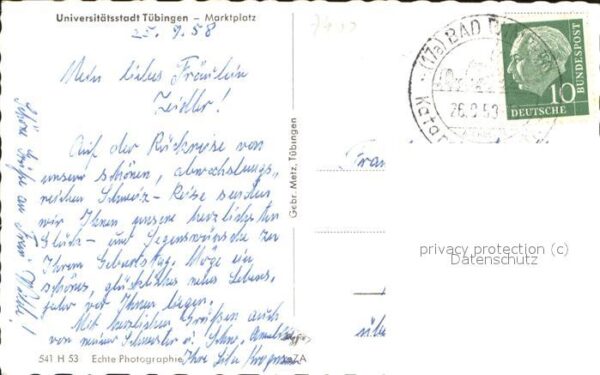 Universitätsstadt Tübingen – Marktplatz
25. 9. 58
Mein liebes Fräulein
Zeidler!
Auf der Rückreise von
unserer schönen, abwechslungs,
reichen Schweiz-Reise senden
wir Ihnen unsere herzlichsten
Glück- und Segenswünsche zu
Ihrem Geburtstag. Möge ein
schönes, glückliches neues Lebens,
jahr vor Ihnen liegen.
Mit herzlichen Grüßen auch
von meiner Schwester
Ihre
Schöne Grüße an Frau
541 H 53 Echte Photographie
Gebr. Metz, Tübingen
(17a) BAD
26.9.58
10
DEUTSCHE
BUNDESPOST
Frau
privacy protection (c)
Datenschutz